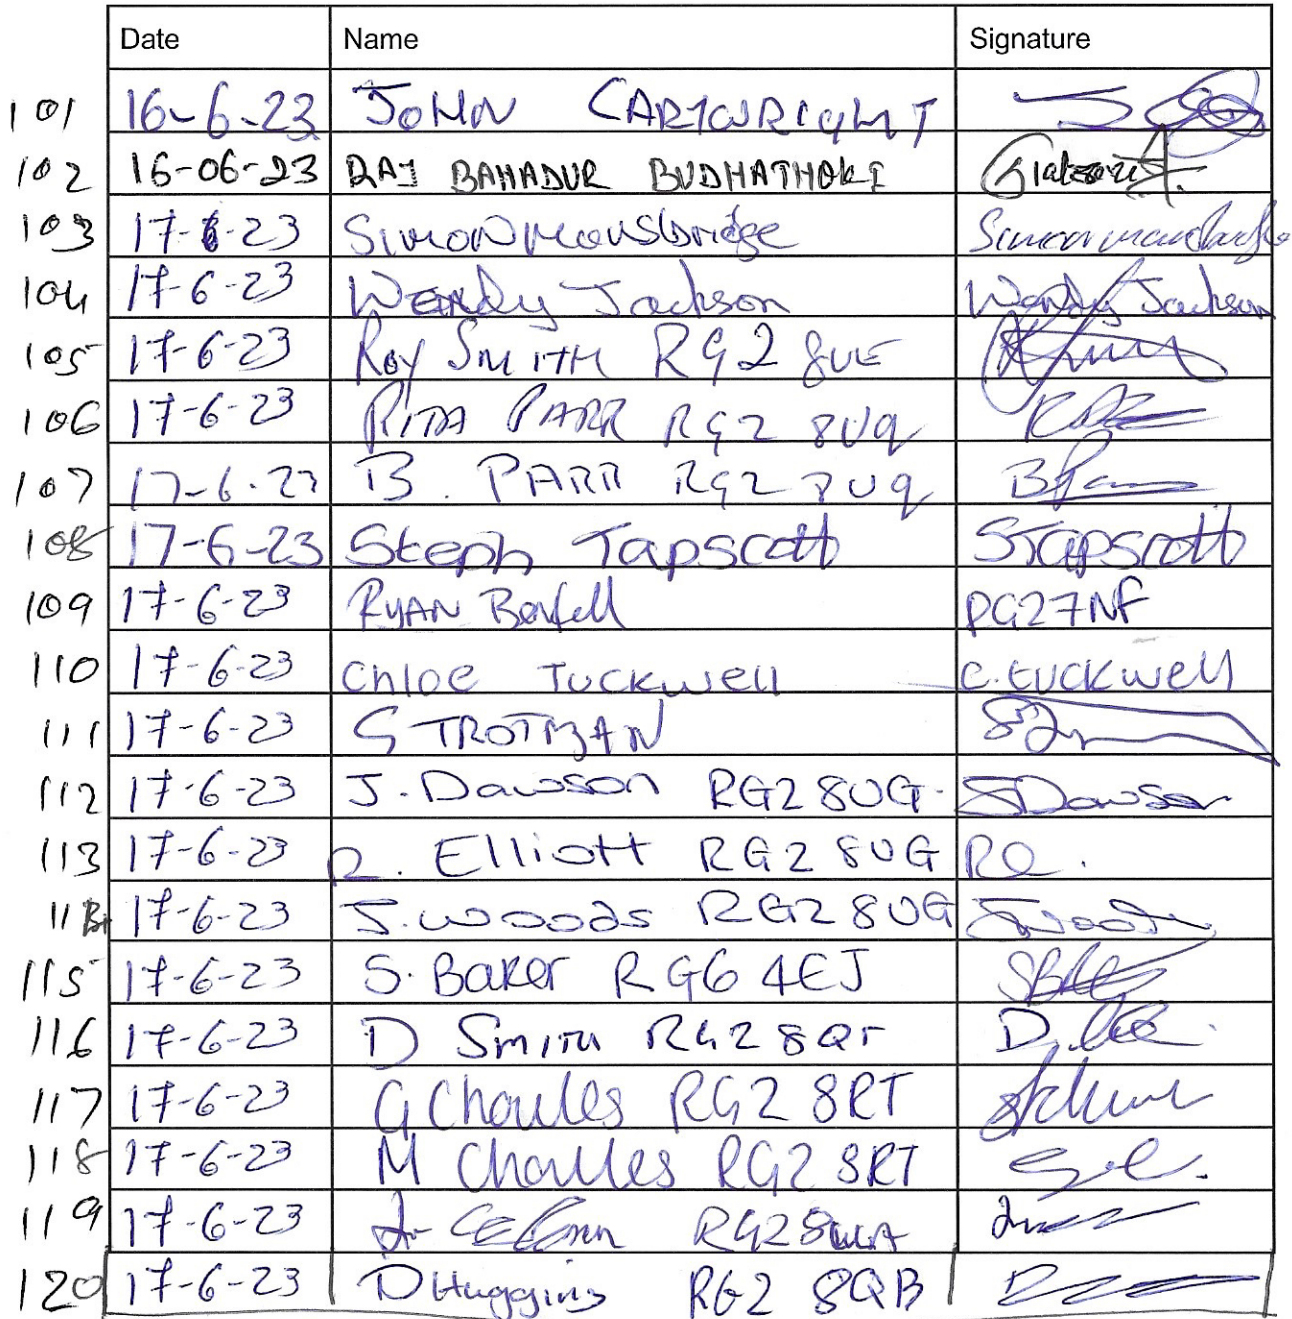 Date Name Signature
101 16-6-23 JOHN CARTWRIGHT
102 16-06-23 RAJ BAHADUR BUDHATHOKI
103 17-6-23 Simon Mansbridge Simon Mansbridge
104 17-6-23 Wendy Jackson Wendy Jackson
105 17-6-23 Roy SMITH RG2 8UE
106 17-6-23 RITA PARR RG2 8UQ
107 17-6-23 B. PARR RG2 8UQ B Parr
108 17-6-23 Steph Tapscott STapscott
109 17-6-23 RYAN RG27NF
110 17-6-23 Chloe Tuckwell C.tuckwell
111 17-6-23 G TROTMAN
112 17-6-23 J. Dawson RG2 8UG. JDawson
113 17-6-23 R. Elliott RG2 8UG RE.
114 17-6-23 J. Woods RG2 8UG JWoods
115 17-6-23 S. Baker RG6 4EJ
116 17-6-23 D Smith RG2 8QT
117 17-6-23 G Choules RG2 8RT
118 17-6-23 M Choules RG2 8RT
119 17-6-23
120 17-6-23 D Huggins RG2 8QB